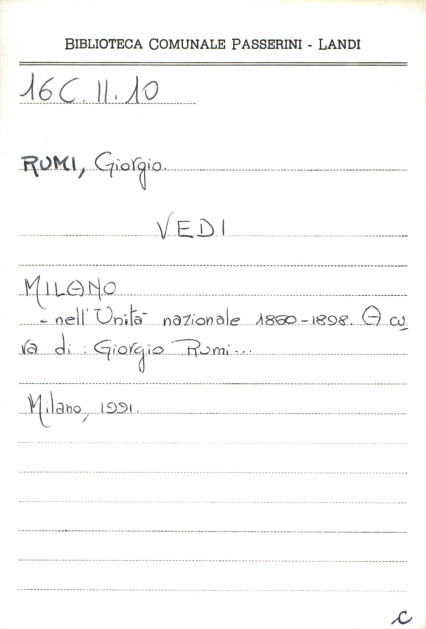 BIBLIOTECA COMUNALE PASSERINI - LANDI
16C.II.10
RUMI, Giorgio.
VEDI
MILANO
- nell'Unità nazionale 1860-1898. A cu
ra di: Giorgio Rumi...
Milano, 1991.
C